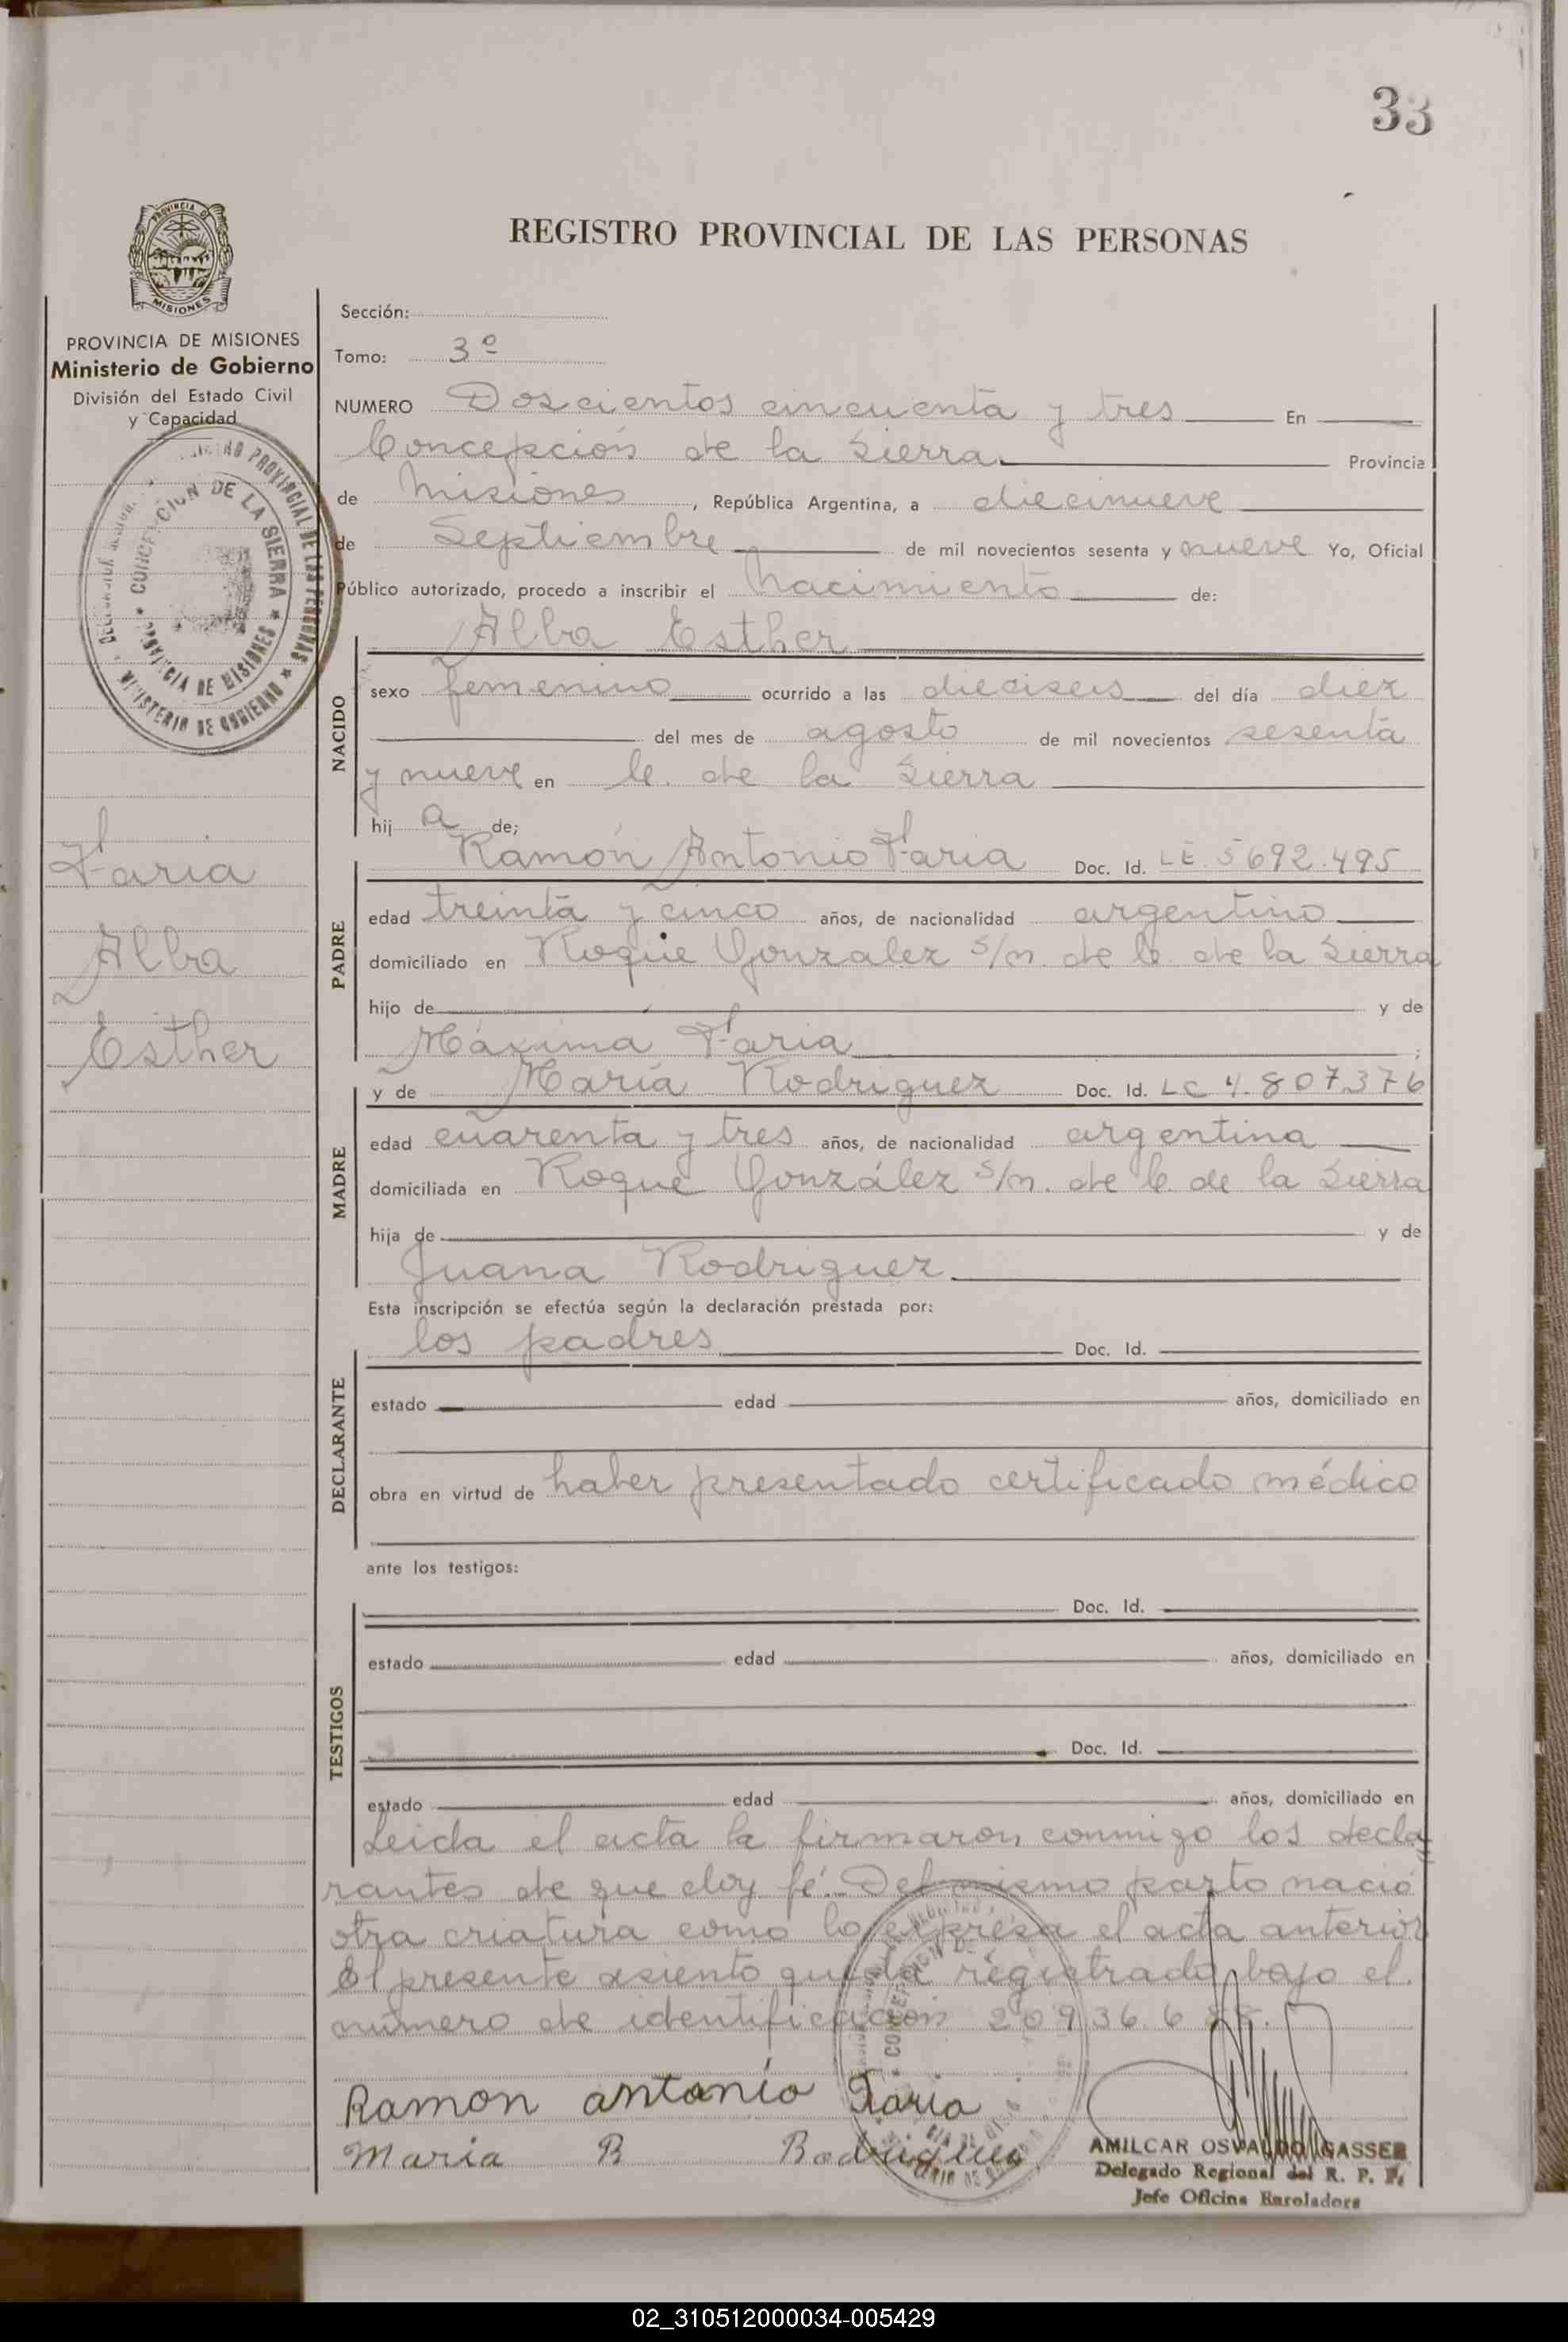 33
PROVINCIA DE
MISIONES
REGISTRO PROVINCIAL DE LAS PERSONAS
PROVINCIA DE MISIONES
Ministerio de Gobierno
División del Estado Civil
y Capacidad
REGISTRO PROVINCIAL DE LAS PERSONAS
CONCEPCION DE LA SIERRA
PROVINCIA DE MISIONES
MINISTERIO DE GOBIERNO
Faria
Alba
Esther
Sección:
Tomo: 3º
NUMERO Doscientos cincuenta y tres En
Concepción de la Sierra Provincia
de Misiones, República Argentina, a diecinueve
de Septiembre de mil novecientos sesenta y nueve Yo, Oficial
Público autorizado, procedo a inscribir el Nacimiento de:
Alba Esther
NACIDO
sexo femenino ocurrido a las dieciseis del día diez
del mes de agosto de mil novecientos sesenta
y nueve en C. de la Sierra
hij a de;
Ramón Antonio Faria Doc. Id. LE. 5692.495
PADRE
edad treinta y cinco años, de nacionalidad argentino
domiciliado en Roque Gonzalez s/n. de C. de la Sierra
hijo de y de
Máxima Faria ;
y de María Rodriguez Doc. Id. LC 4.807376
MADRE
edad cuarenta y tres años, de nacionalidad argentina
domiciliada en Roque González s/n. de C. de la Sierra
hija de y de
Juana Rodriguez
Esta inscripción se efectúa según la declaración prestada por:
los padres Doc. Id.
DECLARANTE
estado edad años, domiciliado en
obra en virtud de haber presentado certificado médico
ante los testigos:
Doc. Id.
TESTIGOS
estado edad años, domiciliado en
Doc. Id.
estado edad años, domiciliado en
Leida el acta la firmaron conmigo los decla
rantes de que doy fé. Del mismo parto nació
otra criatura como lo expresa el acta anterior
El presente asiento queda registrado bajo el
número de identificación
Ramon antonio Faria
Maria B Rodriguez
AMILCAR OSVALDO GASSER
Delegado Regional del R. P. P.
Jefe Oficina Enroladora
02_310512000034-005429